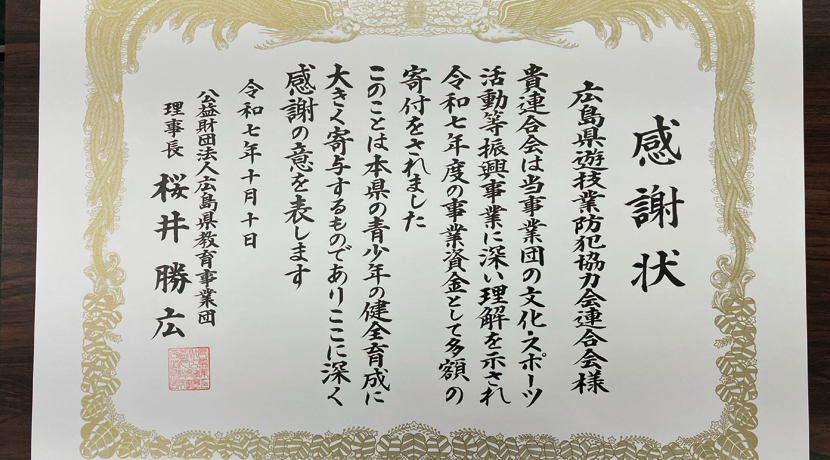 感謝状
広島県遊技業防犯協力会連合会様
貴連合会は当事業団の文化・スポーツ
活動等振興事業に深い理解を示され
令和七年度の事業資金として多額の
寄付をされました
このことは本県の青少年の健全育成に
大きく寄与するものでありここに深く
感謝の意を表します
令和七年十月十日
公益財団法人広島県教育事業団
理事長 桜井勝広